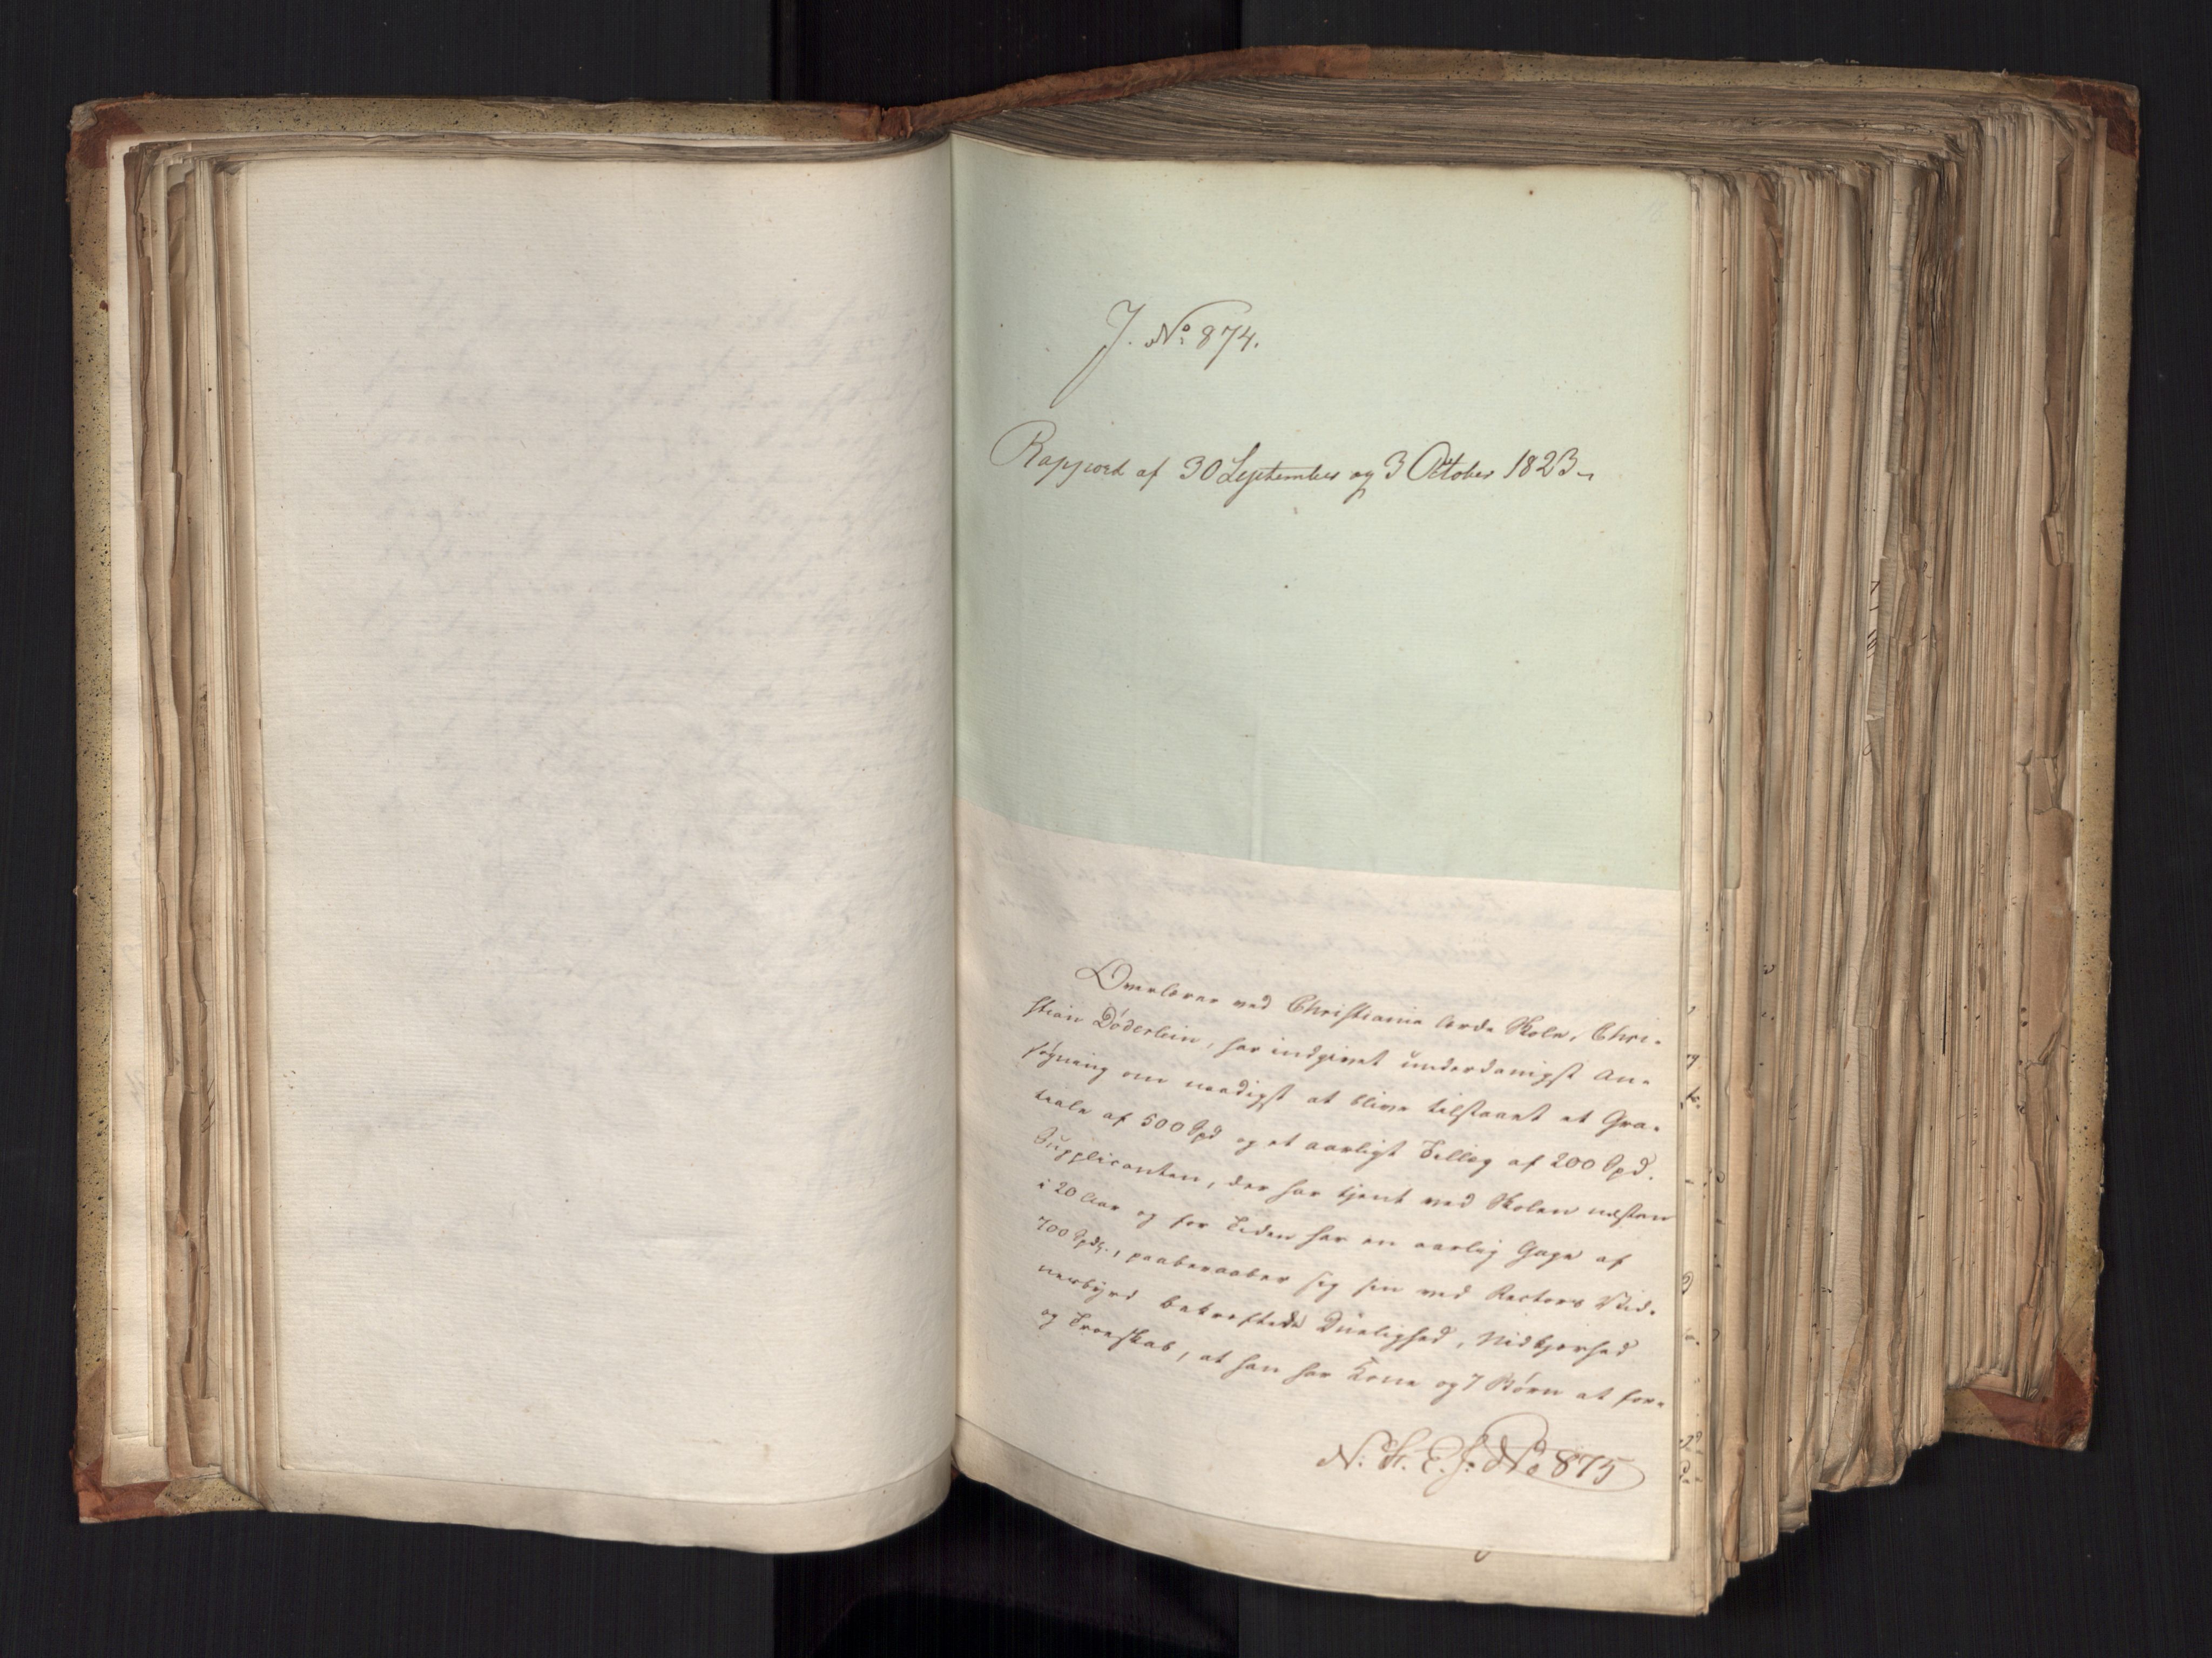 J. No: 874.
Rapport af 30 September og 3 October 1823
Overlærer ved Christiania lærde Skole, Chri-
stian Döderlein, har indgivet underdanigst An-
søgning om naadigst at blive tilstaaet et Gra-
tiale af 500 Spd og et aarligt Tillæg af 200 Spd.
Supplicanten, der har tjent ved Skolen næsten
i 20 Aar og for Tiden har en aarlig Gage af
700 Spd., paaberaaber sig sin ved Rectors Vid-
nesbyrd bekræftede Duelighed, Nidkjærhed
og Troeskab, at han har Kone og 7 Børn at for-
N. K. E. J: No 875